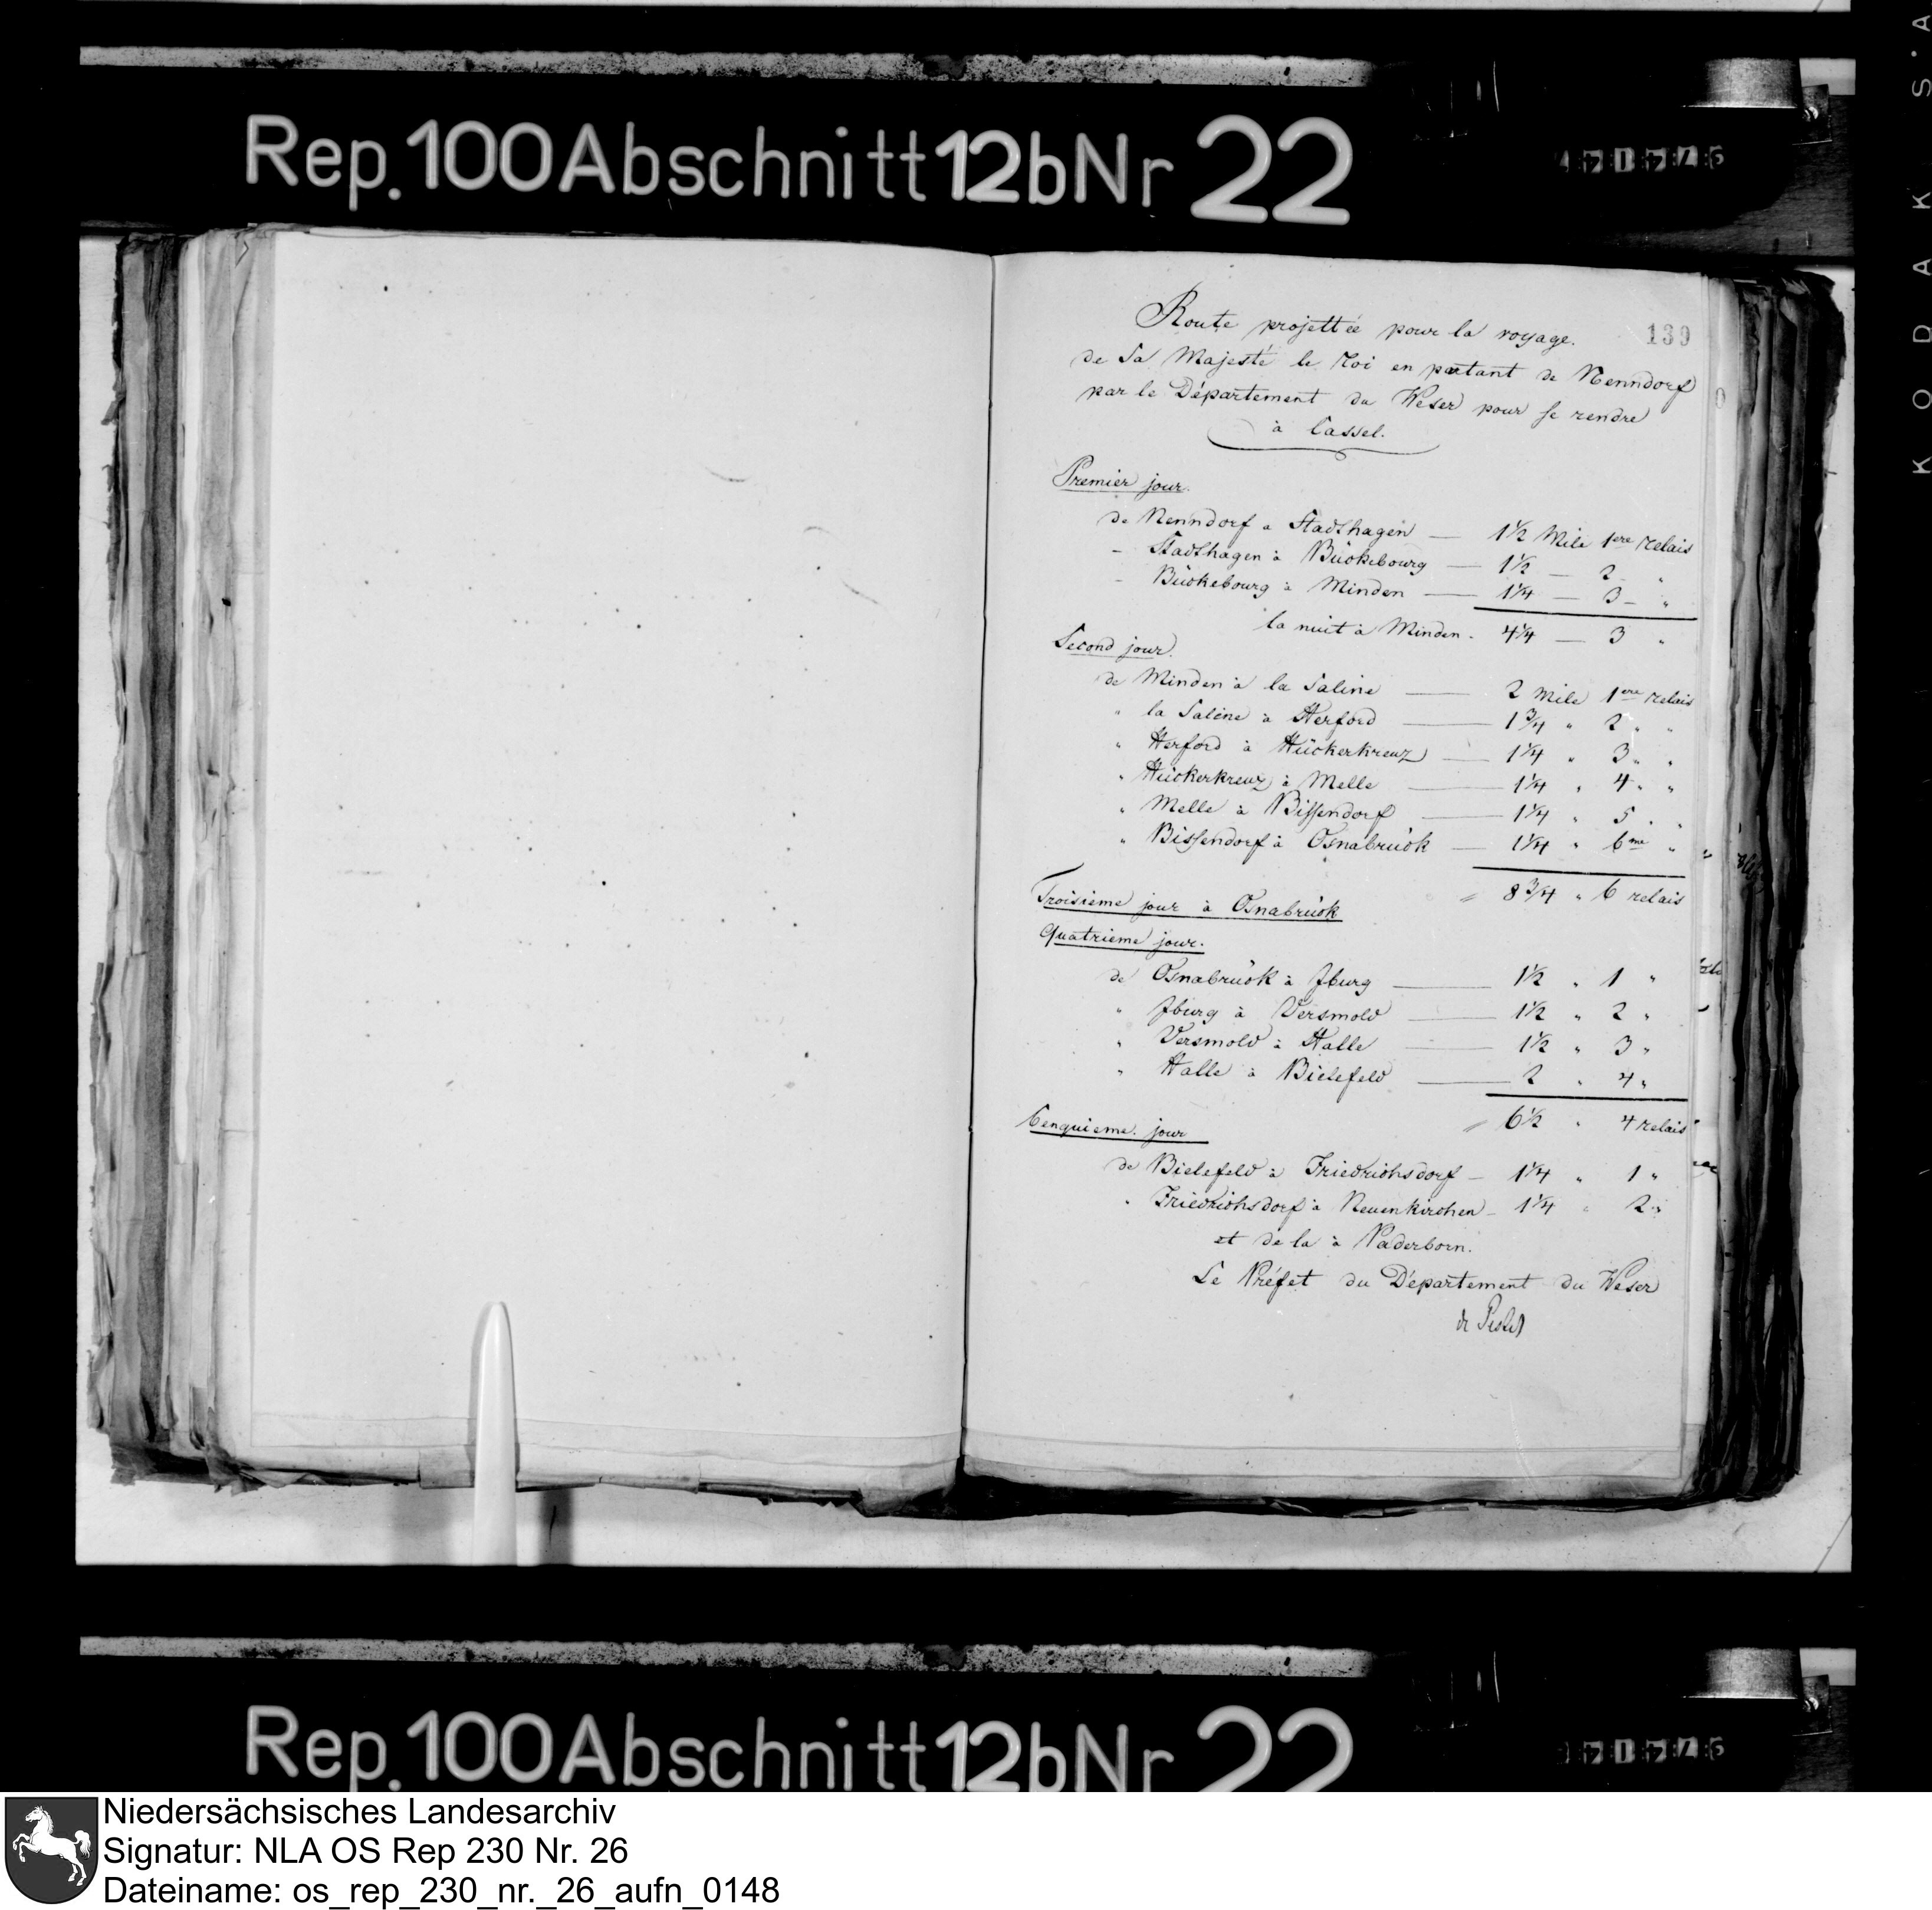 KODAK S'A
Rep. 100 Abschnitt 12b Nr 22
139
Route projettée pour la voyage.
de Sa Majesté le Roi en partant de Nenndorf
par le Département du Weser pour se rendre
à Cassel.
Premier jour.
de Nenndorf a Stadthagen — 1½ Mile 1ere relais
– Stadthagen à Bückebourg — 1½ — 2 "
– Bückebourg à Minden — 1¼ — 3 – "
la nuit à Minden. 4¼ — 3 "
Second jour.
de Minden à la Saline — 2 Mile 1ere relais
" la Saline à Herford — 1¾ " 2 " "
" Herford à Hückerkreuz — 1¼ " 3 " "
" Hückerkreuz à Melle — 1¼ " 4 " "
" Melle à Bissendorf — 1¼ " 5 " "
" Bissendorf à Osnabrück — 1¼ " 6me "
= 8¾ " 6 relais
Troisieme jour à Osnabrück
Quatrieme jour.
de Osnabrück à Jburg — 1½ " 1 "
" Jburg à Versmold — 1½ " 2 "
" Versmold à Halle — 1½ " 3 "
" Halle à Bielefeld — 2 " 4 "
= 6½ " 4 relais
Cenquieme. jour
de Bielefeld à Friedrichsdorf – 1¼ " 1 "
" Friedrichsdorf à Neuenkirchen – 1¼ " 2 "
et de la à Paderborn.
Le Préfet du Département du Weser
de Pestel
Rep. 100 Abschnitt 12b Nr 22
Niedersächsisches Landesarchiv
Signatur: NLA OS Rep 230 Nr. 26
Dateiname: os_rep_230_nr._26_aufn_0148